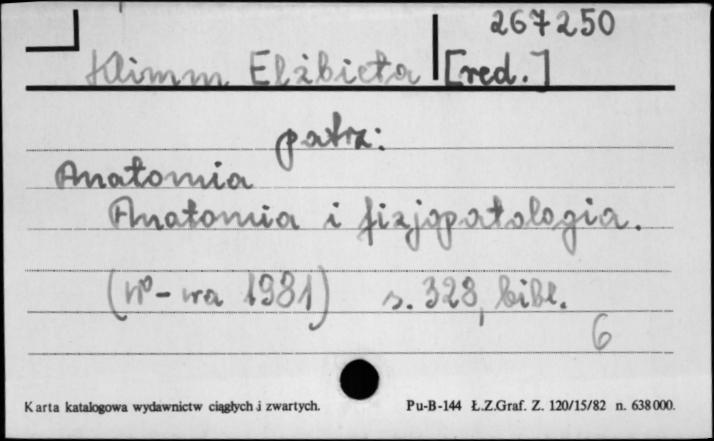 267250
Klimm Elżbieta [red.]
patrz:
Anatomia
Anatomia i fizjopatologia.
(W-wa 1981) s. 328, bibl.
6
Karta katalogowa wydawnictw ciągłych i zwartych. Pu-B-144 Ł.Z.Graf. Z. 120/15/82 n. 638000.